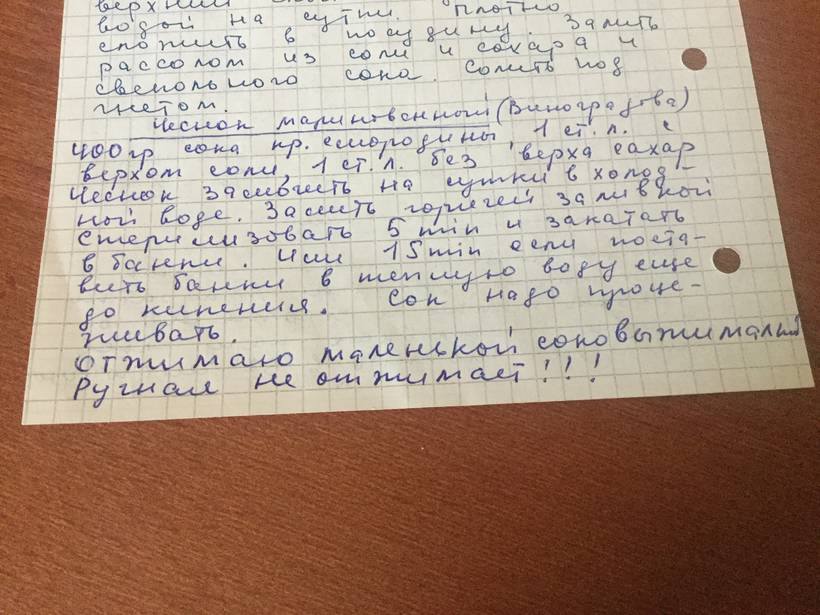 верхний
водой на сутки. Плотно
сложить в посудину. Залить
рассолом из соли и сахара и
свекольного сока. Солить под
гнетом.
Чеснок маринованный (Виноградова)
400гр сока кр. смородины, 1 ст. л. с
верхом соли, 1 ст. л. без верха сахар
Чеснок замочить на сутки в холод-
ной воде. Залить горячей заливкой
стерилизовать 5 min и закатать
в банки. Или 15 min если поста-
вить банки в теплую воду еще
до кипения. Сок надо проце-
живать.
Отжимаю маленькой соковыжималкой
Ручная не отжимает!!!